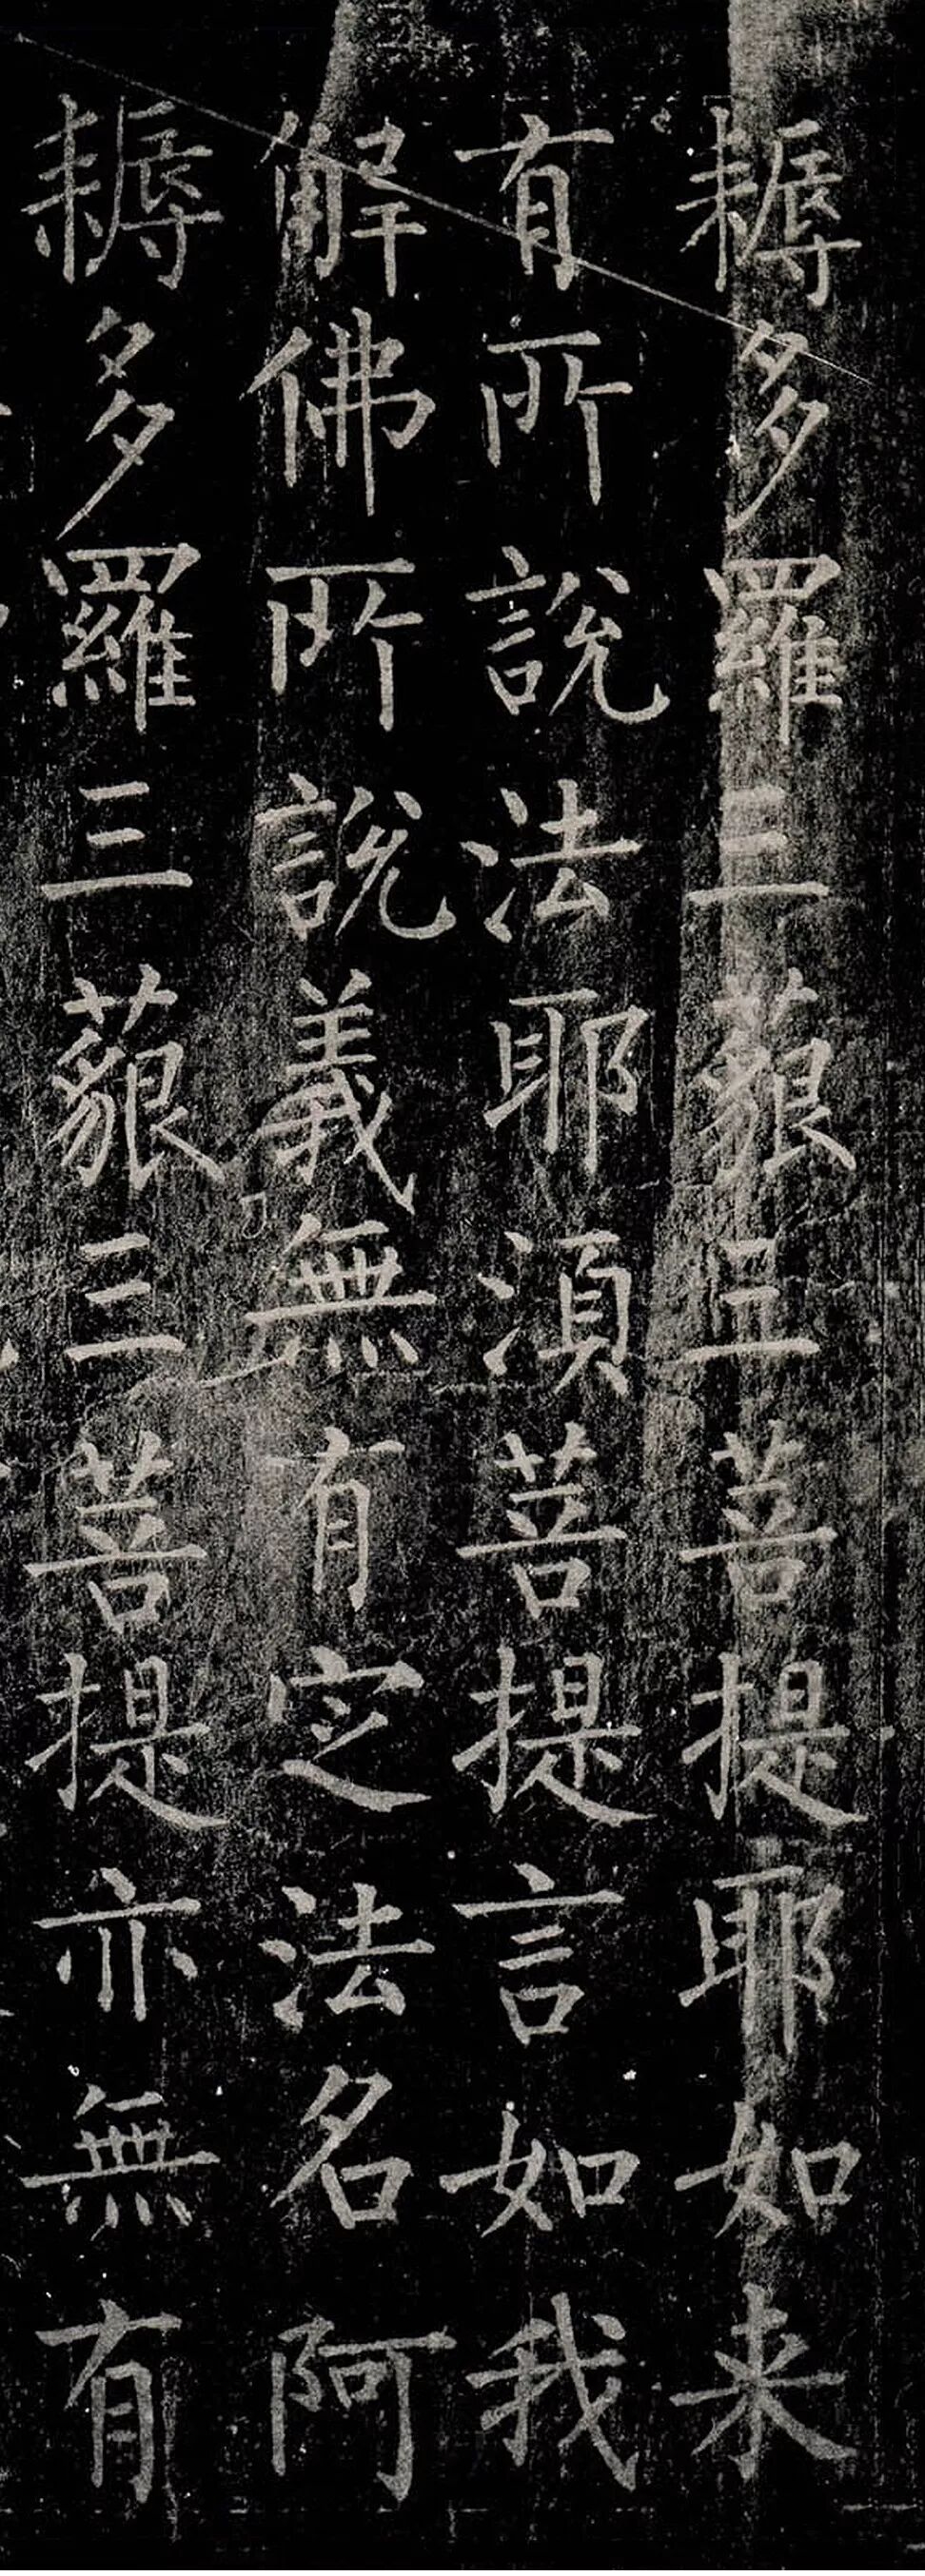 耨多羅三藐三菩提耶如来
有所說法耶湏菩提言如我
解佛所說義無有定法名阿
耨多羅三藐三菩提亦無有